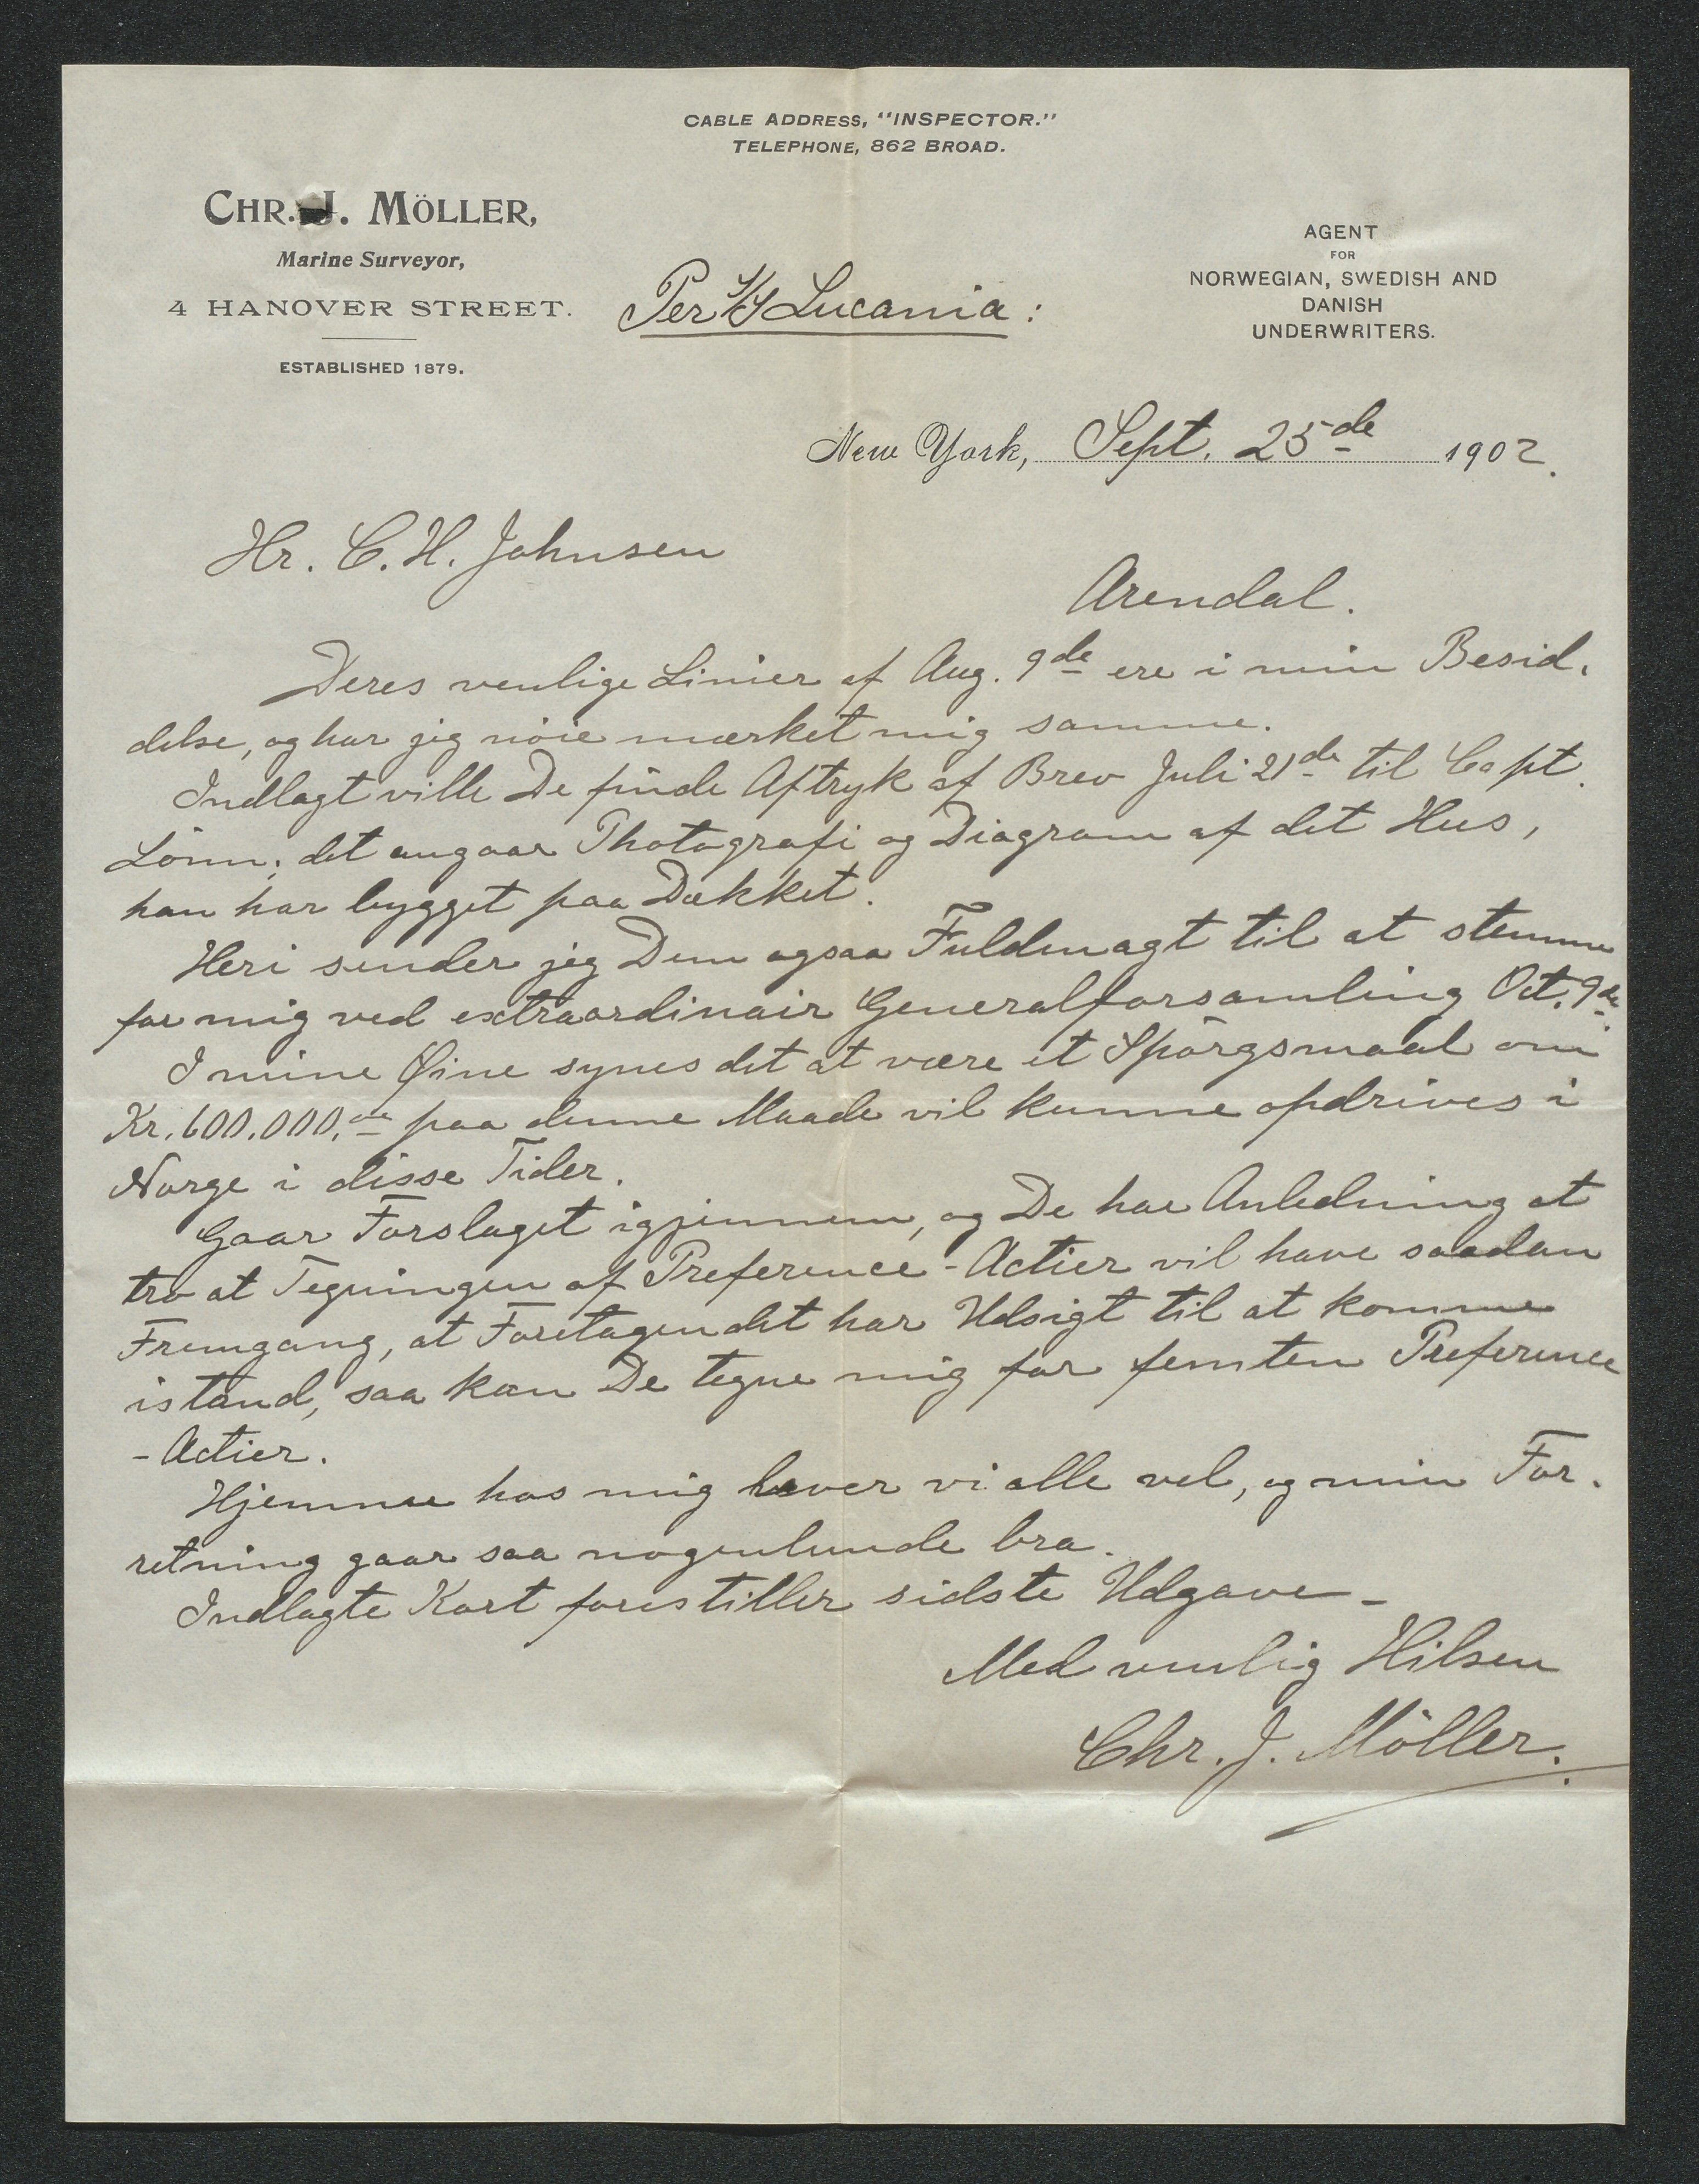 CABLE ADDRESS, "INSPECTOR."
TELEPHONE, 862 BROAD.
CHR. J. MÖLLER,
Marine Surveyor,
4 HANOVER STREET.
ESTABLISHED 1879.
AGENT
FOR
NORWEGIAN, SWEDISH AND
DANISH
UNDERWRITERS.
Per S/S Lucania:
New York, Sept. 25de 1902.
Hr. C. H. Johnsen
Arendal.
Deres venlige Linier af Aug. 9de ere i min Besid-
delse, og har jeg nöie mærket mig samme.
Indlagt ville De finde Aftryk af Brev Juli 21de til Capt.
Lönn; det angaar Photografi og Diagram af det Hus,
han har bygget paa Dækket.
Heri sender jeg Dem ogsaa Fuldmagt til at stemme
for mig ved extraordinair Generalforsamling Oct. 9de.
I mine Øine synes det at være et Spörgsmaal om
Kr. 600.000,00 paa denne Maade vil kunne opdrives i
Norge i disse Tider.
Gaar Forslaget igjennem, og De har Anledning at
tro at Tegningen af Preference-Actier vil have saadan
Fremgang, at Foretagendet har Udsigt til at komme
istand, saa kan De tegne mig for femten Preference
-Actier.
Hjemme hos mig lever vi alle vel, og min For-
retning gaar saa nogenlunde bra.
Indlagte Kort forestiller sidste Udgave -
Med venlig Hilsen
Chr. J. Möller.